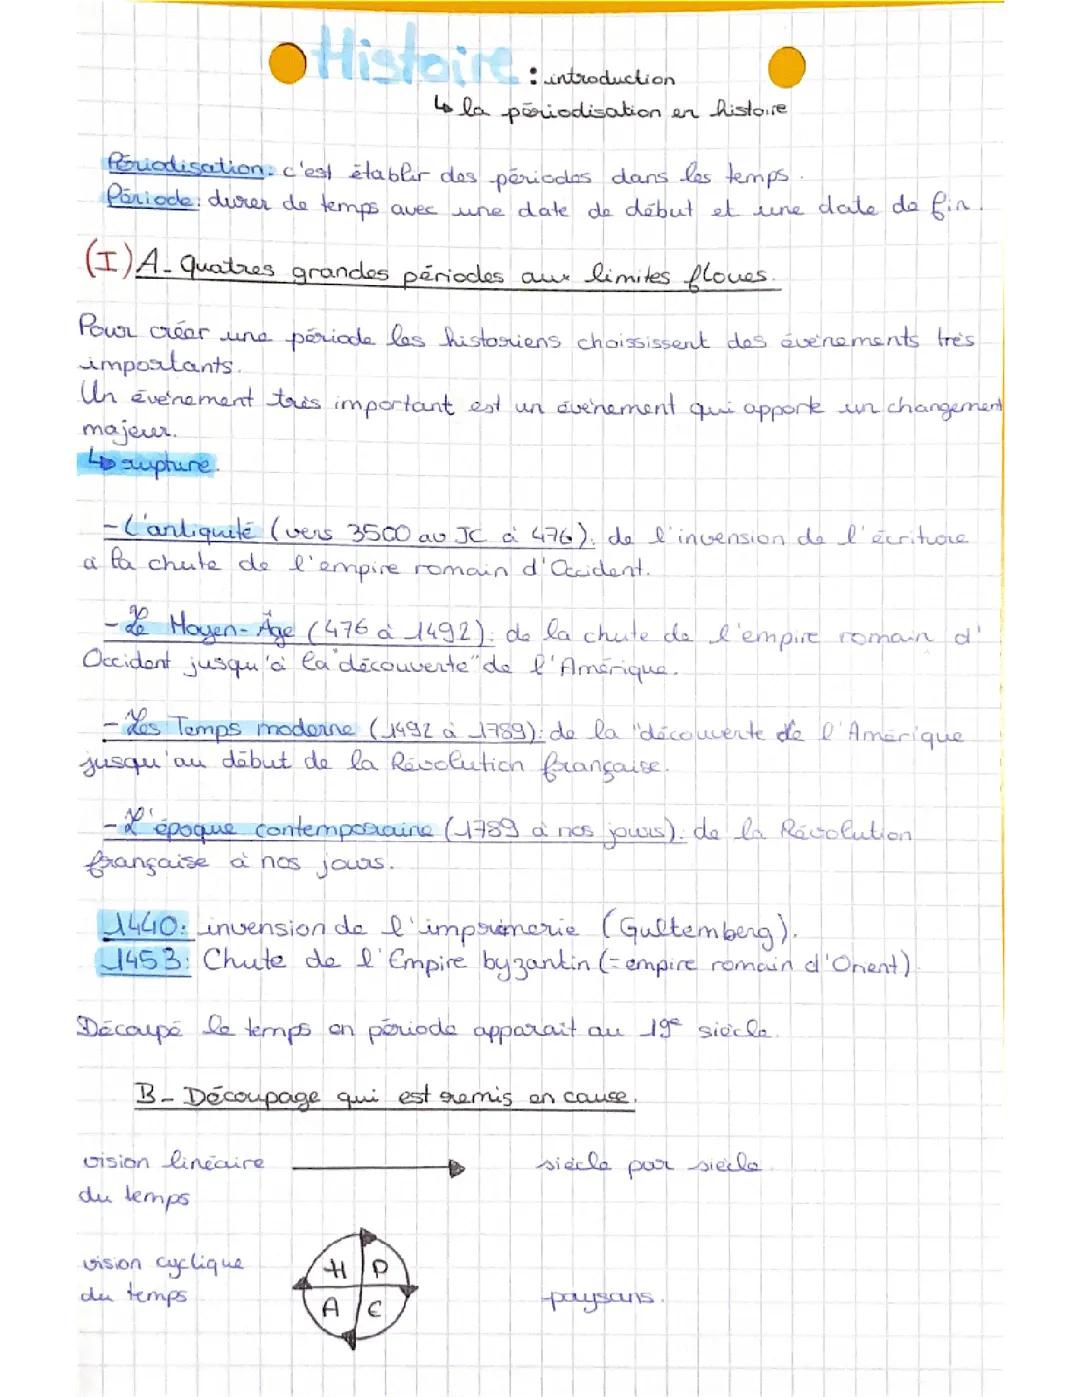 Histoire : introduction
↳ la périodisation en histoire
Périodisation: c'est établir des périodes dans les temps.
Période: durer de temps avec une date de début et une date de fin.
(I) A- Quatres grandes périodes aux limites floues.
Pour créer une période les historiens choisissent des événements très
importants.
Un événement très important est un événement qui apporte un changement
majeur.
↳ rupture.
- L'antiquité (vers 3500 av JC à 476): de l'invension de l'écriture
à la chute de l'empire romain d'Occident.
- Le Moyen-Âge (476 à 1492): de la chute de l'empire romain d'
Occident jusqu'à la "découverte" de l'Amérique.
- Les Temps moderne (1492 à 1789): de la "découverte de l'Amérique
jusqu'au début de la Révolution française.
- L'époque contemporaine (1789 à nos jours): de la Révolution
française à nos jours.
1440: invension de l'imprimerie (Gultemberg).
1453: Chute de l'Empire byzantin (= empire romain d'Orient)
Découpé le temps en période apparait au 19e siècle.
B- Découpage qui est remis en cause.
vision linéaire siècle par siècle.
du temps
vision cyclique
H P
du temps paysans.
A E